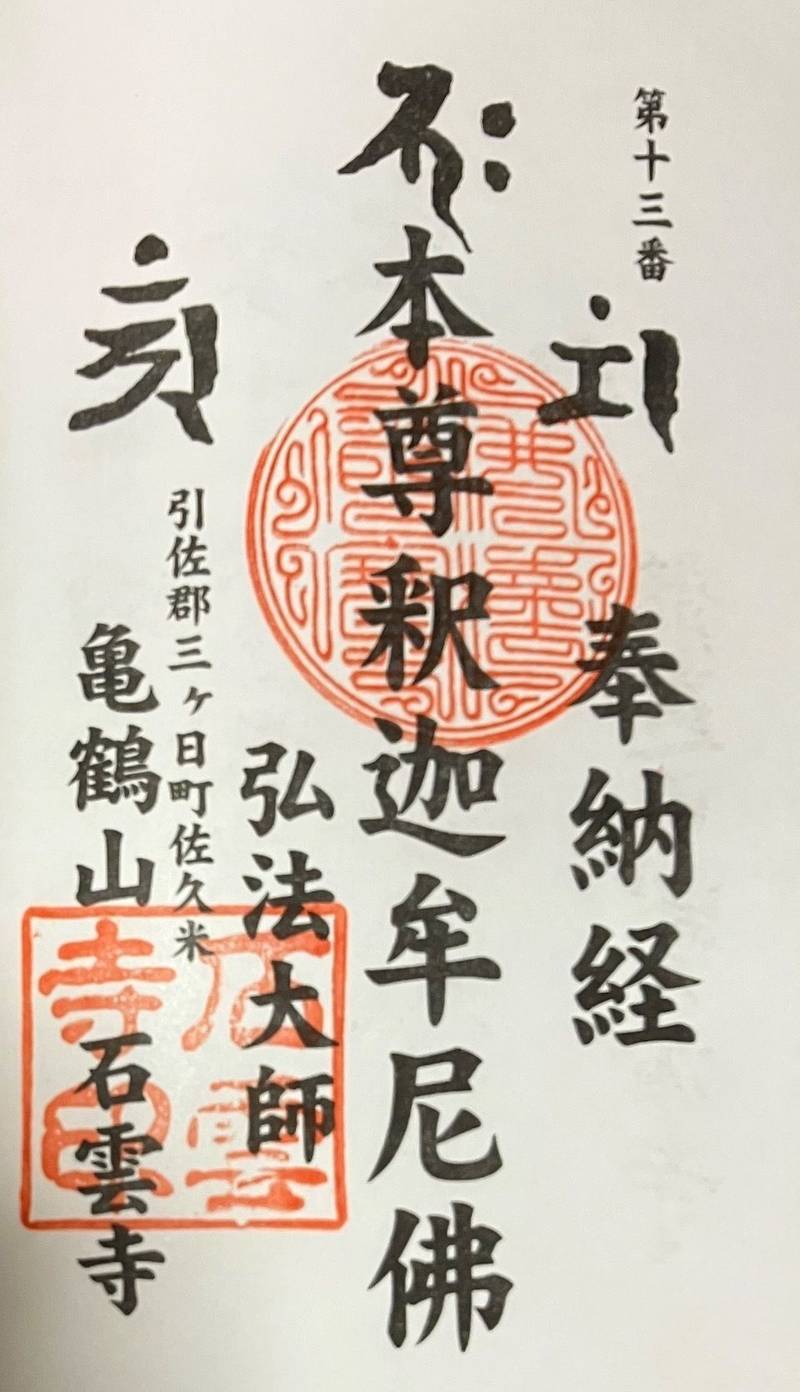 第十三番
奉納経
本尊釈迦牟尼佛
弘法大師
引佐郡三ヶ日町佐久米
亀鶴山 石雲寺
石雲
寺印